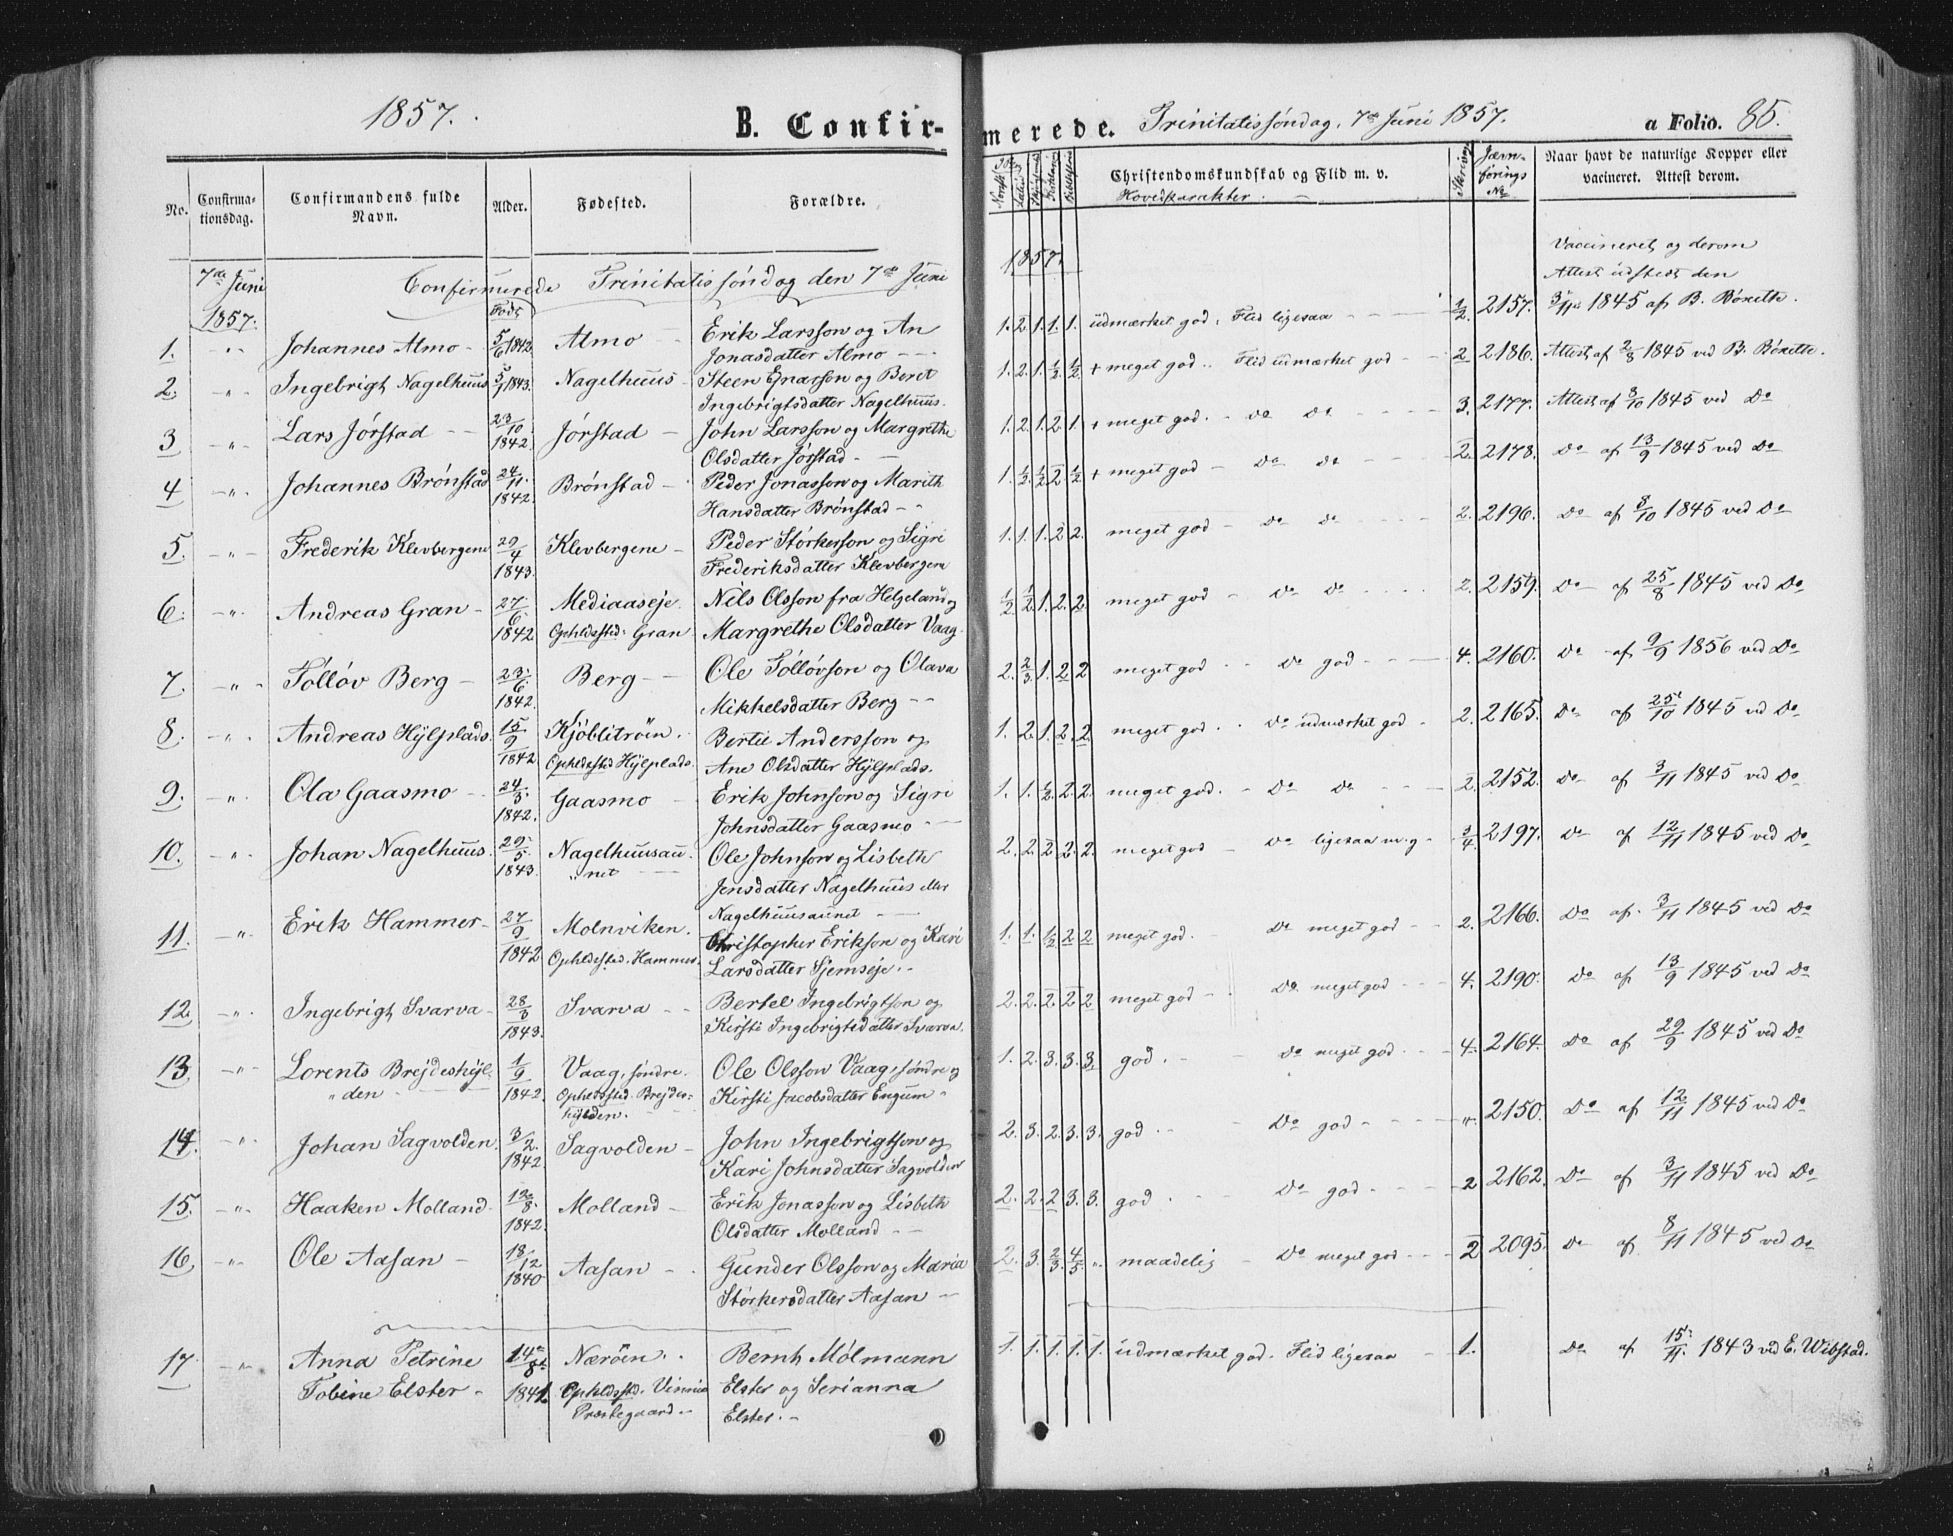 1857.
B. Confir-
No. Confirma-tionsdag. Confirmandens fulde Navn. Alder. Fødested. Forældre.
7de Juni Confirmerede Trinitatissøndag den 7de Juni
1857. Født
1. -"- Johannes Almo - 5/6 1842 Almo - Erik Larsson og An
Jonasdatter Almo - - -
2. -"- Ingebrigt Nagelhuus 5/1 1843. Nagelhuus - Steen Enarson og Beret
Ingebrigtsdatter Nagelhuus.
3 -"- Lars Jørstad - - 23/10 1842. Jørstad - John Larsson og Margrethe
Olsdatter Jørstad - -
4 -"- Johannes Brønstad 24/11 1842. Brønstad - Peder Jonasson og Marith
Hansdatter Brønstad - -
5. -"- Frederik Klevbergene 29/4 1843. Klevbergene - Peder Størkersson og Sigri
Frederiksdatter Klevbergene
6. -"- Andreas Gran - 27/6 1842 Mediaaseje. Nils Olsson fra Helgeland og
Opholdssted: Gran Margrethe Olsdatter Vaag.
7. -"- Tølløv Berg - 23/6 1842. Berg - - Ole Tølløvson og Olava
Mikkelsdatter Berg - -
8. -"- Andreas Hylplads. 15/9 1842 Kjøblitrøen. Bertie Andersson og
Opholdssted Hylplads. Ane Olsdatter Hylplads.
9. -"- Ola Gaasmo - 24/3 1842. Gaasmo - Erik Johnson og Sigri
Johnsdatter Gaasmo - -
10. -"- Johan Nagelhuus. 29/5 1843. Nagelhuusau- Ole Johnson og Lisbeth
"net - Jensdatter Nagelhuus eller
Nagelhuusaunet -
11. -"- Erik Hammer - 27/9 1842 Molnviken. Christopher Erikson og Kari
Opholdssted. Hammer. Larsdatter Sjemseje. -
12 -"- Ingebrigt Svarva - 28/3 1843. Svarva - - Bertel Ingebrigtson og
Kirsti Ingebrigtsdatter Svarva.
13 -"- Lorents Brejdeshyl- 1/9 1842. Vaag, søndre. Ole Olsson Vaag, søndre og
"den - Opholdssted Brejdes- Kirsti Jacobsdatter Engum "
hylden. -
14. -"- Johan Sagvolden. 3/2 1842. Sagvolden - John Ingebrigtson og
Kari Johnsdatter Sagvolden
15. -"- Haaken Molland. 12/8 1842. Molland - Erik Jonasson og Lisbeth
Olsdatter Molland - -
16. -"- Ole Aasan - 18/12 1840 Aasan - Gunder Olsson og Maria
Størkersdatter Aasan -
17 -"- Anna Petrine 14de/8t Nærøen. Bernh. Mølmann
Tobine Elster - 1841. Opholdssted. Vinnie Elster og Serianna
Præstegaard - Elster. -
merede. Trinitatissøndag, 7de Juni 1857. a Folio. 85.
Christendomskundskab og Flid m. v. Naar havt de naturlige Kopper eller
Hovedkarakter. Skrivn. Jæm-førings No vacineret. Attest derom.
1857. Vaccineret og derom
Attest udstedt den
1. 2. 1. 1. 1. udmærket god, Flid ligesaa - - - 1/2. 2157. 3/11 1845 af B. Bøxeth.
1. 2. 1. 1/2. 1/2. + meget god. Flid udmærket god - - 2 2186. Attest af 2/8 1845 ved B. Bøxeth.
1. 2. 1. 2. 1. + meget god. - Do Do - - - - 3. 2177. Attest af 3/10 1845 ved Do
1. 1/2 1/2 2 1/2 + meget god - Do Do - - - - 2. 2178. Do af 13/9 1845 ved Do
1. 1. 1. 2 2. meget god - Do Do - - - - 2. 2196. Do af 8/10 1845 ved Do
1/2 1/2 1. 2. 2. meget god - Do Do - - - - 2. 2159. Do af 25/8 1845 ved Do
2. 2/3 1. 2 2 meget god - Do god - - - 4. 2160. Do af 9/9 1856 ved Do
1. 2. 1. 2. 2. meget god. - Do udmærket god - 2. 2165. Do af 25/10 1845 ved Do
1. 1. 1/2 2. 2. meget god. - Do Do - - - 2. 2152. Do af 3/11 1845 ved Do
2. 2. 2 2. 2. meget god - Do ligesaa m. g - 3/4 2197. Do af 12/11 1845 ved Do
1. 1. 1/2 2 2 meget god. Do meget god - - 2. 2166. Do af 3/11 1845 ved Do
2. 2. 2 2 2 meget god - Do meget god - - - 4. 2190. Do af 13/9 1845 ved Do
1. 2. 3. 3. 3. god. - - Do meget god. - - 4. 2164. Do af 29/9 1845 ved Do
2. 3. 2. 3. 3. god. - - Do god - - - - " 2150. Do af 12/11 1845 ved Do
2. 2. 2 3. 3. god. - - Do god - - - - 2 2162. Do af 3/11 1845 ved Do
2. 3. 2/3 4/5 " maadelig - Do meget god - - - 2. 2095. Do af 8/11 1845 ved Do
1. 1. 1. 1. 1. udmærket god. Flid ligesaa - 1. Do af 15/11 1843 ved E. Wibstad.